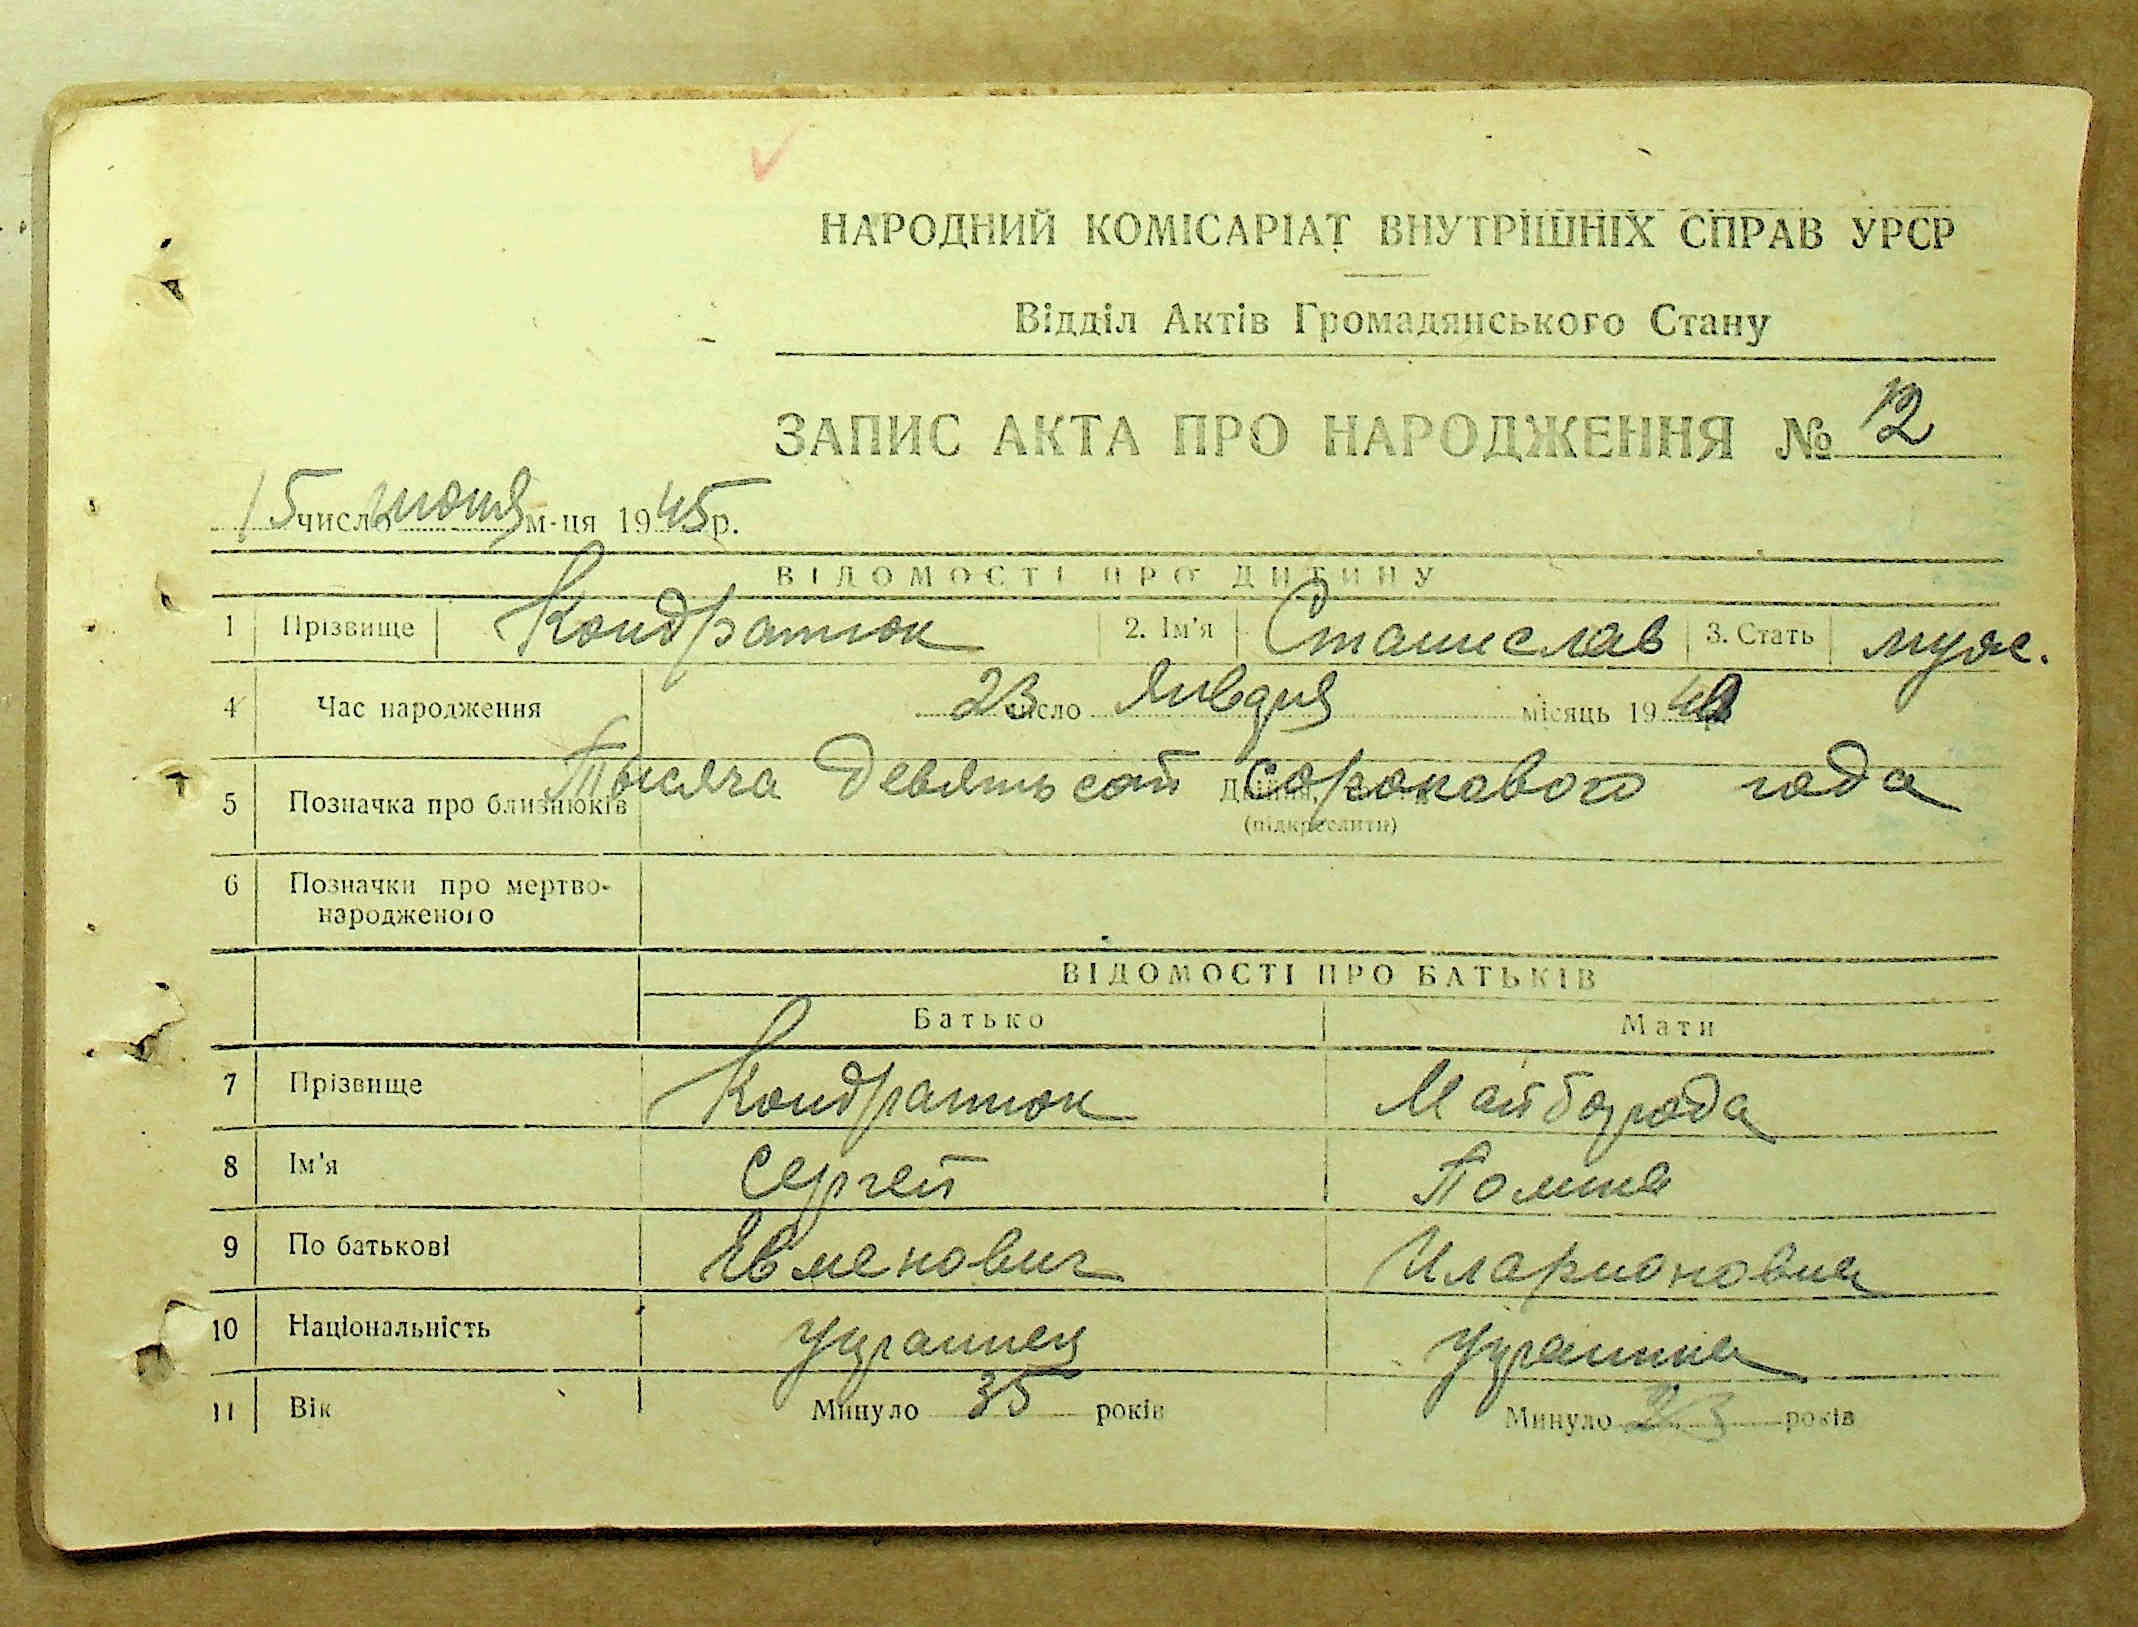 НАРОДНИЙ КОМІСАРІАТ ВНУТРІШНІХ СПРАВ УРСР
Відділ Актів Громадянського Стану
ЗАПИС АКТА ПРО НАРОДЖЕННЯ № 12
15 число июня м-ця 1945 р.
ВІДОМОСТІ ПРО ДИТИНУ
1 Прізвище Кондратюк 2. Ім'я Станислав 3. Стать муж.
4 Час народження 23 число Января місяць 1940
Тысяча девятьсот сорокового года
5 Позначка про близнюків
(підкреслити)
6 Позначки про мертво-
народженого
ВІДОМОСТІ ПРО БАТЬКІВ
Батько Мати
7 Прізвище Кондратюк Майборода
8 Ім'я Сергей Полина
9 По батькові Евменович Иларионовна
10 Національність Украинец Украинка
11 Вік Минуло 35 років Минуло років